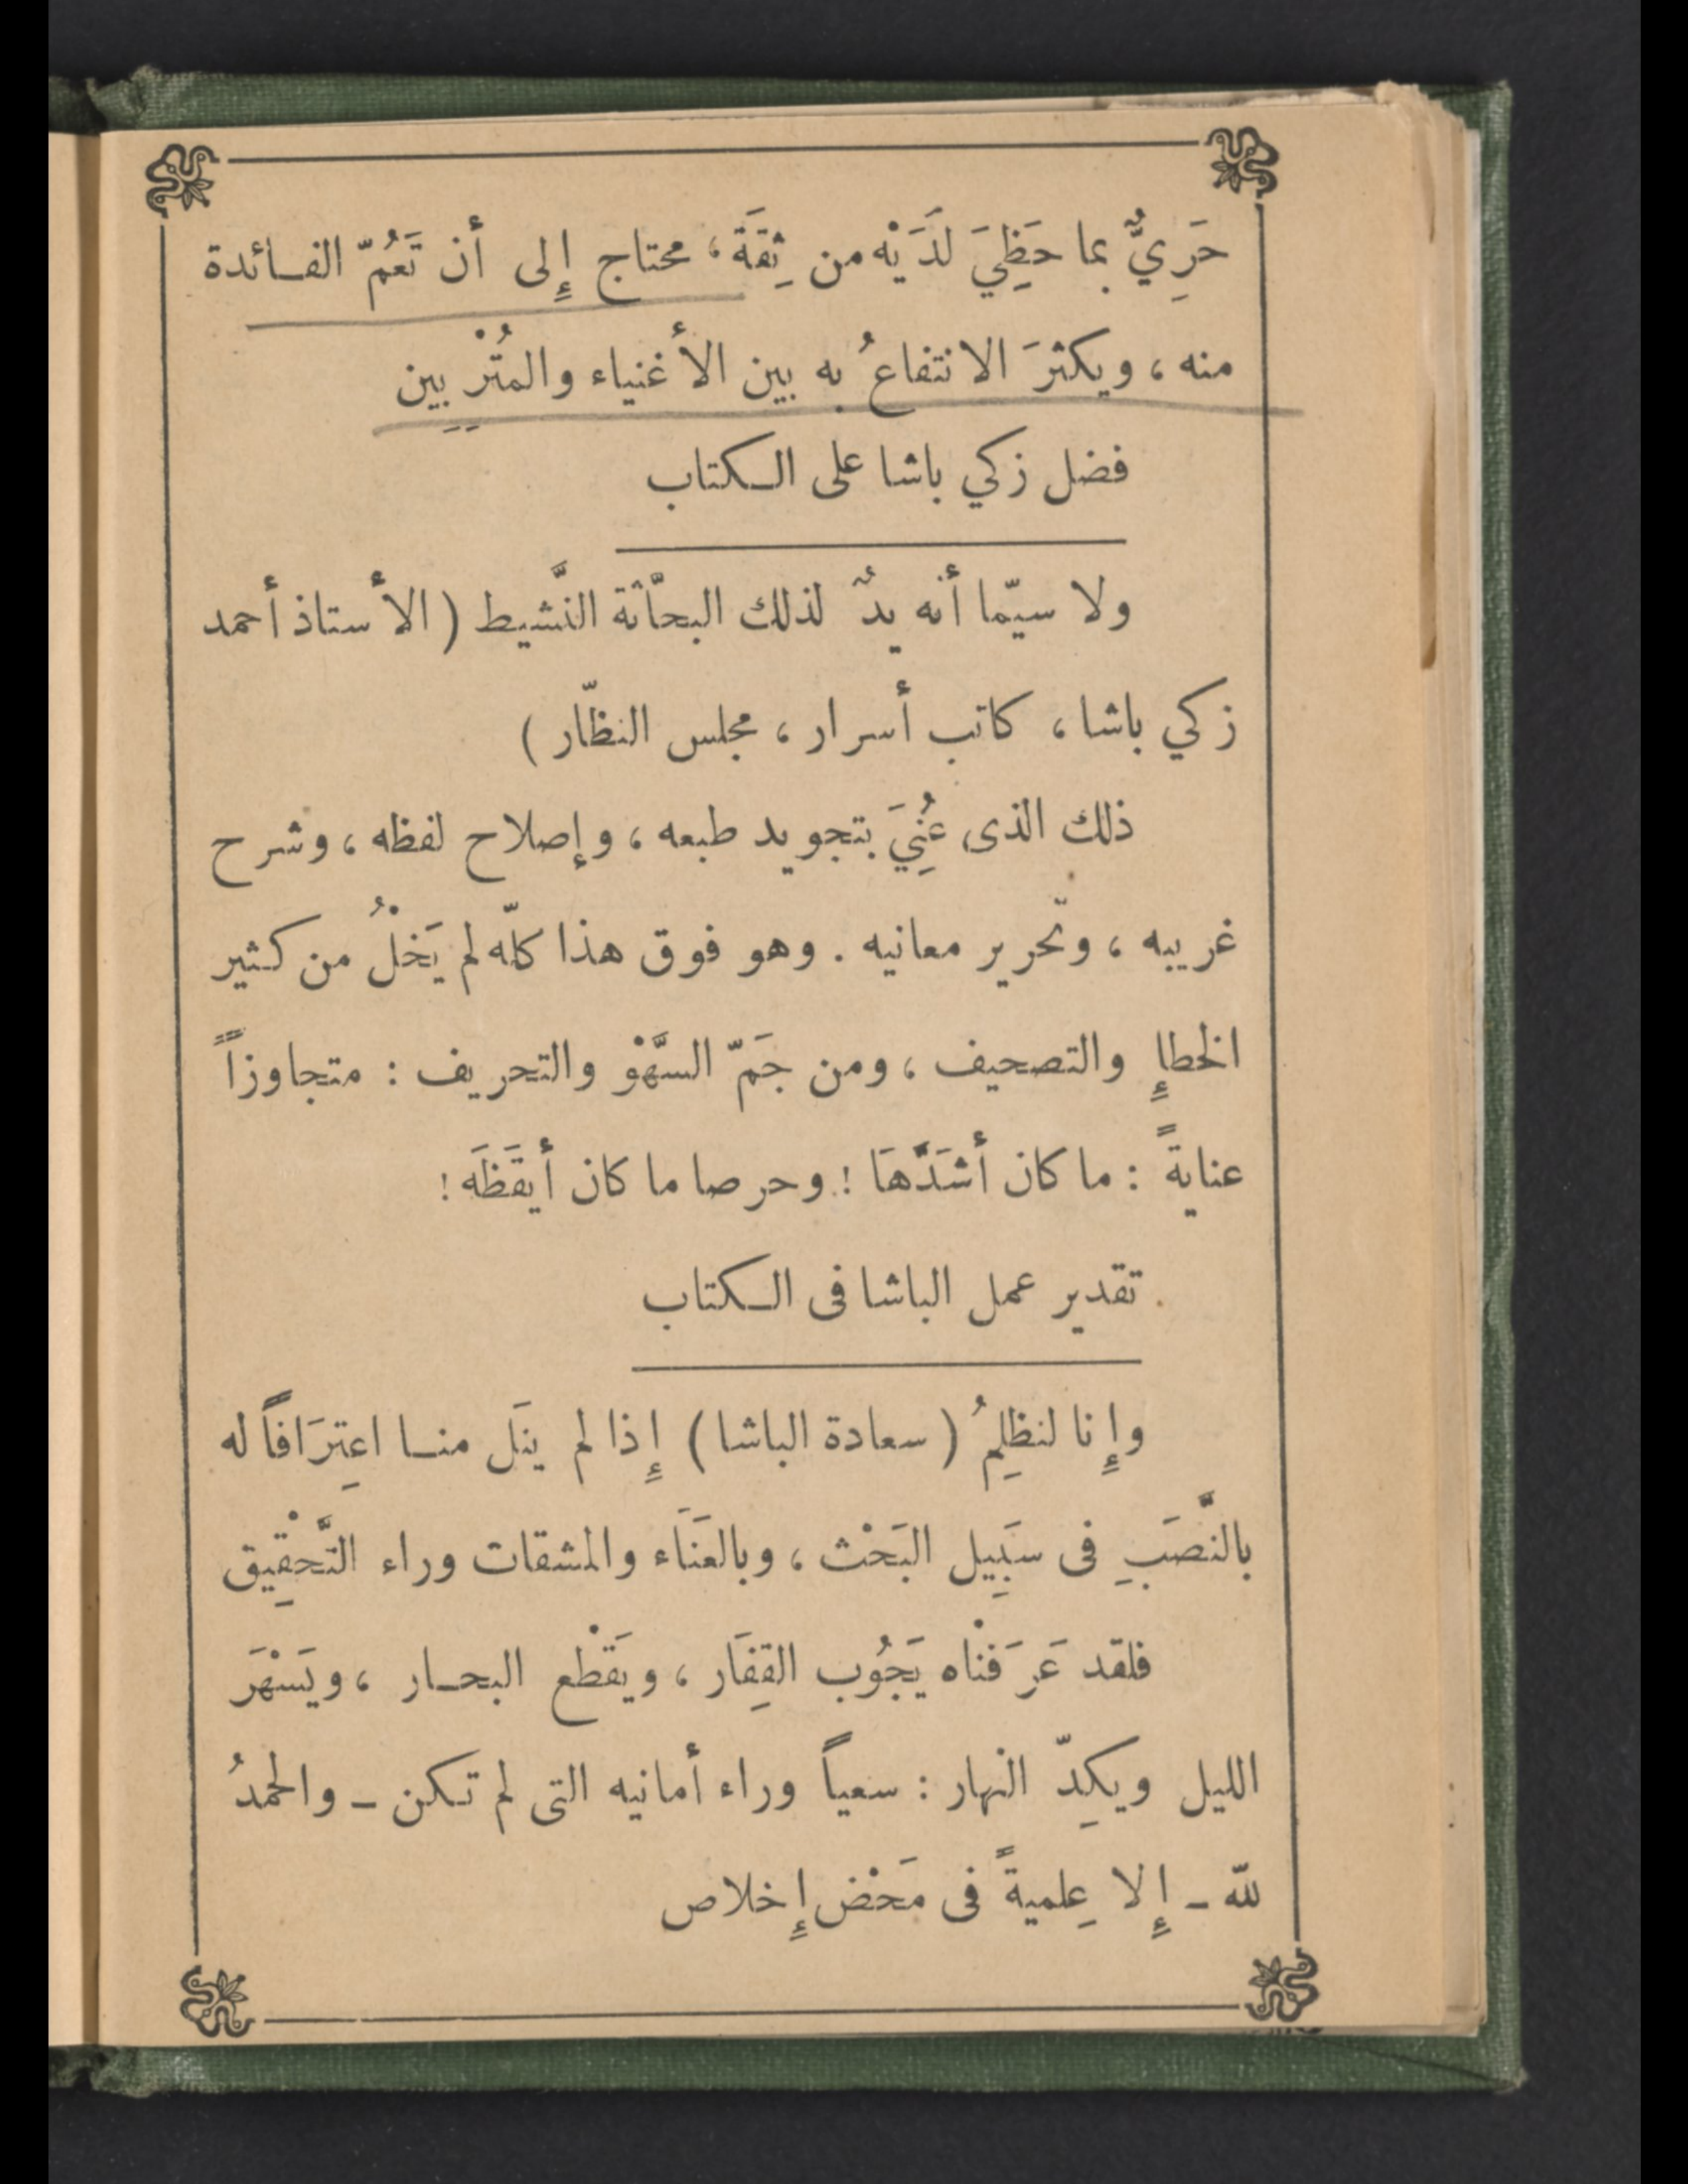 حَرِيٌّ بما حَظِيَ لَدَيْه من ثِقَةَ، محتاج إِلى أن تَعُمّ الفائدة
منه ، ويكثرَ الانتفاعُ به بين الأغنياء والمُتْرِبِين
فضل زكي باشا على الكتاب
ولا سيّما أنه يدٌ لذلك البحّاثة النَّشيط ( الأستاذ أحمد
زكي باشا ، كاتب أسرار ، مجلس النظّار )
ذلك الذى عُنِيَ بتجويد طبعه ، وإصلاح لفظه ، وشرح
غريبه ، وتحرير معانيه . وهو فوق هذا كلّه لم يَخْلُ من كثير
الخطإِ والتصحيف ، ومن جَمّ السَّهْو والتحريف : متجاوزاً
عنايةً : ما كان أشَدَّهَا ! وحرصا ما كان أيقَظَه !
تقدير عمل الباشا فى الكتاب
وإِنا لنظلِمُ ( سعادة الباشا ) إِذا لم ينَل منا اعتِرَافاً له
بالنَّصَبِ فى سَبِيل البَحْث ، وبالعَنَاء والمشقات وراء التَّحْقِيق
فلقد عَرَفْناه يَجُوب القِفَار ، ويَقْطع البحار ، ويَسْهَرَ
الليل ويكِدّ النهار : سعياً وراء أمانيه التى لم تكن – والحمدُ
لله – إِلا عِلميةً فى مَحْض إِخلاص